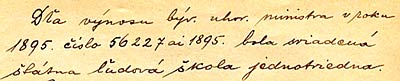 Dľa výnosu býv. uhor. ministra v roku
1895. číslo 56227 ai 1895. bola sriadená
štátna ľudová škola jednotriedna.